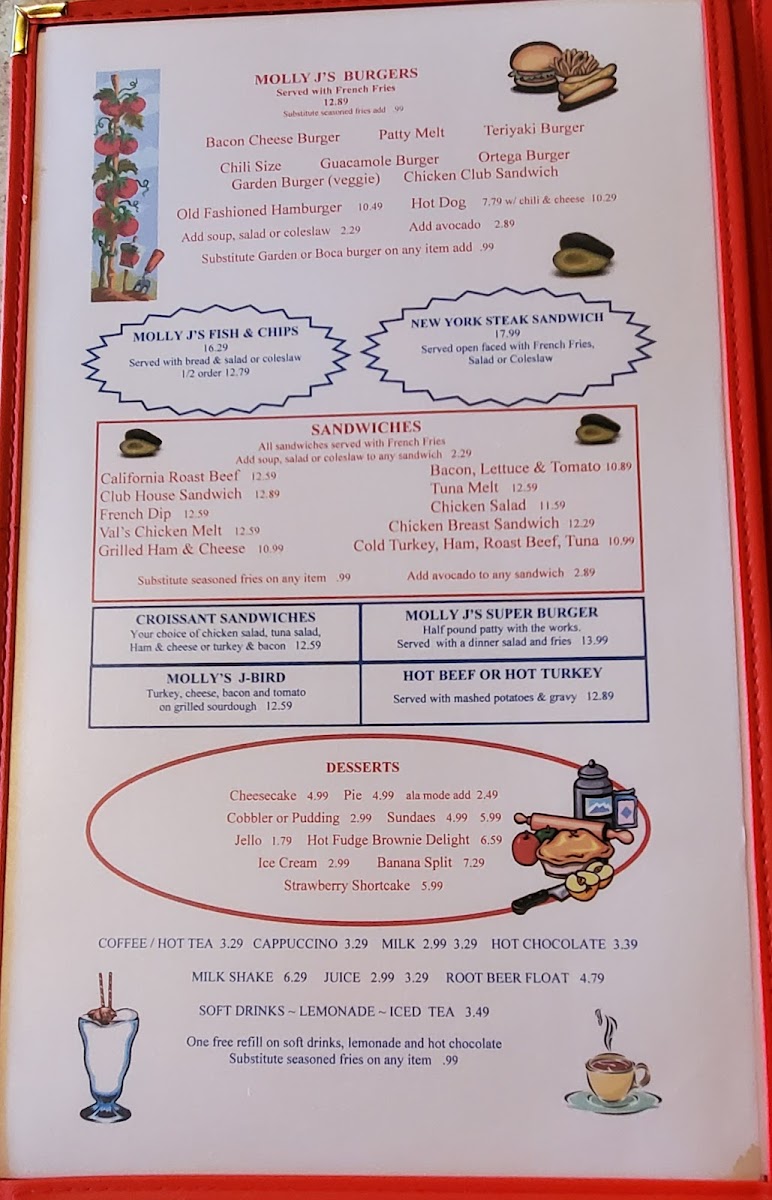 MOLLY J'S BURGERS
Served with French Fries
12.89
Substitute seasoned fries add .99
Bacon Cheese Burger Patty Melt Teriyaki Burger
Chili Size Guacamole Burger Ortega Burger
Garden Burger (veggie) Chicken Club Sandwich
Old Fashioned Hamburger 10.49 Hot Dog 7.79 w/ chili & cheese 10.29
Add soup, salad or coleslaw 2.29 Add avocado 2.89
Substitute Garden or Boca burger on any item add .99
MOLLY J'S FISH & CHIPS
16.29
Served with bread & salad or coleslaw
1/2 order 12.79
NEW YORK STEAK SANDWICH
17.99
Served open faced with French Fries,
Salad or Coleslaw
SANDWICHES
All sandwiches served with French Fries
Add soup, salad or coleslaw to any sandwich 2.29
California Roast Beef 12.59 Bacon, Lettuce & Tomato 10.89
Club House Sandwich 12.89 Tuna Melt 12.59
French Dip 12.59 Chicken Salad 11.59
Val's Chicken Melt 12.59 Chicken Breast Sandwich 12.29
Grilled Ham & Cheese 10.99 Cold Turkey, Ham, Roast Beef, Tuna 10.99
Substitute seasoned fries on any item .99 Add avocado to any sandwich 2.89
CROISSANT SANDWICHES
Your choice of chicken salad, tuna salad,
Ham & cheese or turkey & bacon 12.59
MOLLY J'S SUPER BURGER
Half pound patty with the works.
Served with a dinner salad and fries 13.99
MOLLY'S J-BIRD
Turkey, cheese, bacon and tomato
on grilled sourdough 12.59
HOT BEEF OR HOT TURKEY
Served with mashed potatoes & gravy 12.89
DESSERTS
Cheesecake 4.99 Pie 4.99 ala mode add 2.49
Cobbler or Pudding 2.99 Sundaes 4.99 5.99
Jello 1.79 Hot Fudge Brownie Delight 6.59
Ice Cream 2.99 Banana Split 7.29
Strawberry Shortcake 5.99
COFFEE / HOT TEA 3.29 CAPPUCCINO 3.29 MILK 2.99 3.29 HOT CHOCOLATE 3.39
MILK SHAKE 6.29 JUICE 2.99 3.29 ROOT BEER FLOAT 4.79
SOFT DRINKS ~ LEMONADE ~ ICED TEA 3.49
One free refill on soft drinks, lemonade and hot chocolate
Substitute seasoned fries on any item .99